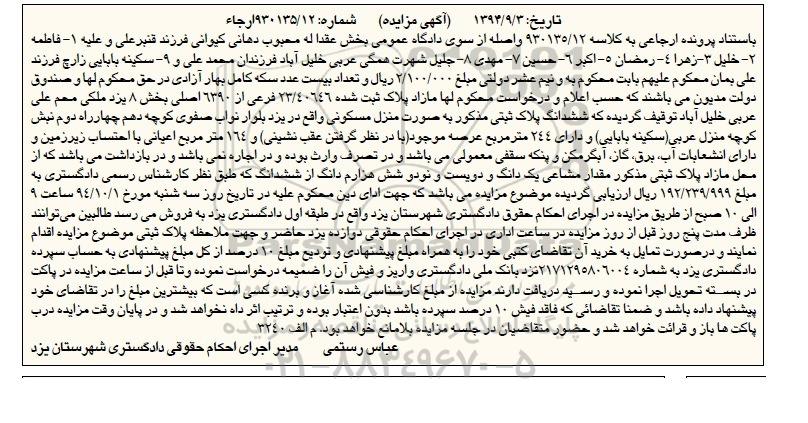 تاریخ: ۱۳۹۴/۹/۳ (آگهی مزایده) شماره: ۹۳۰۱۳۵/۱۲ارجاء
باستناد پرونده ارجاعی به کلاسه ۹۳۰۱۳۵/۱۲ واصله از سوی دادگاه عمومی بخش عقدا له محبوب دهانی کیوانی فرزند قنبرعلی و علیه ۱- فاطمه
۲- خلیل ۳-زهرا ۴- رمضان ۵-اکبر ۶- حسین ۷- مهدی ۸- جلیل شهرت همگی عربی خلیل آباد فرزندان محمد علی و ۹- سکینه بابایی زارچ فرزند
علی بمان محکوم علیهم بابت محکوم به ونیم عشر دولتی مبلغ ۲/۱۰۰/۰۰۰ ریال و تعداد بیست عدد سکه کامل بهار آزادی در حق محکوم لها و صندوق
دولت مدیون می باشند که حسب اعلام و درخواست محکوم لها مازاد پلاک ثبت شده ۲۳/۴۰۶۴۶ فرعی از ۶۳۹۰ اصلی بخش ۸ یزد ملکی محم علی
عربی خلیل آباد توقیف گردیده که ششدانگ پلاک ثبتی مذکور به صورت منزل مسکونی واقع در یزد بلوار نواب صفوی کوچه دهم چهارراه دوم نبش
کوچه منزل عربی(سکینه بابایی) و دارای ۲۴۴ مترمربع عرصه موجود(با در نظر گرفتن عقب نشینی) و ۱۶۴ متر مربع اعیانی با احتساب زیرزمین و
دارای انشعابات آب، برق، گاز، آبگرمکن و پنکه سقفی معمولی می باشد و در تصرف وارث بوده و در اجاره نمی باشد و در بازداشت می باشد که از
محل مازاد پلاک ثبتی مذکور مقدار مشاعی یک دانگ و دویست و نودو شش هزارم دانگ از ششدانگ که طبق نظر کارشناس رسمی دادگستری به
مبلغ ۱۹۲/۲۳۹/۹۹۹ ریال ارزیابی گردیده موضوع مزایده می باشد که جهت ادای دین محکوم علیه در تاریخ روز سه شنبه مورخ ۹۴/۱۰/۱ ساعت ۹
الی ۱۰ صبح از طریق مزایده در اجرای احکام حقوق دادگستری شهرستان یزد واقع در طبقه اول دادگستری یزد به فروش می رسد طالبین می‌توانند
ظرف مدت پنج روز قبل از روز مزایده در ساعت اداری در اجرای احکام حقوقی دوازده یزد حاضر و جهت ملاحظه پلاک ثبتی موضوع مزایده اقدام
نمایند و درصورت تمایل به خرید آن تقاضای کتبی خود را به همراه مبلغ پیشنهادی و تودیع مبلغ ۱۰ درصد از کل مبلغ پیشنهادی به حساب سپرده
دادگستری یزد به شماره ۲۱۷۱۲۹۵۸۰۶۰۰۴نزد بانک ملی دادگستری واریز و فیش آن را ضمیمه درخواست نموده وتا قبل از ساعت مزایده در پاکت
در بسته تحویل اجرا نموده و رسید دریافت دارند مزایده از مبلغ کارشناسی شده آغاز و برنده کسی است که بیشترین مبلغ را در تقاضای خود
پیشنهاد داده باشد و ضمنا تقاضائی که فاقد فیش ۱۰ درصد سپرده باشد بدون اعتبار بوده و ترتیب اثر داه نخواهد شد و در پایان وقت مزایده درب
پاکت ها باز و قرائت خواهد شد و حضور متقاضیان در جلسه مزایده بلامانع خواهد بود. م الف ۳۲۴۰
عباس رستمی مدیر اجرای احکام حقوقی دادگستری شهرستان یزد
ParsNamadData
۰۲۱-۸۸۳۴۹۶۷۰-۵